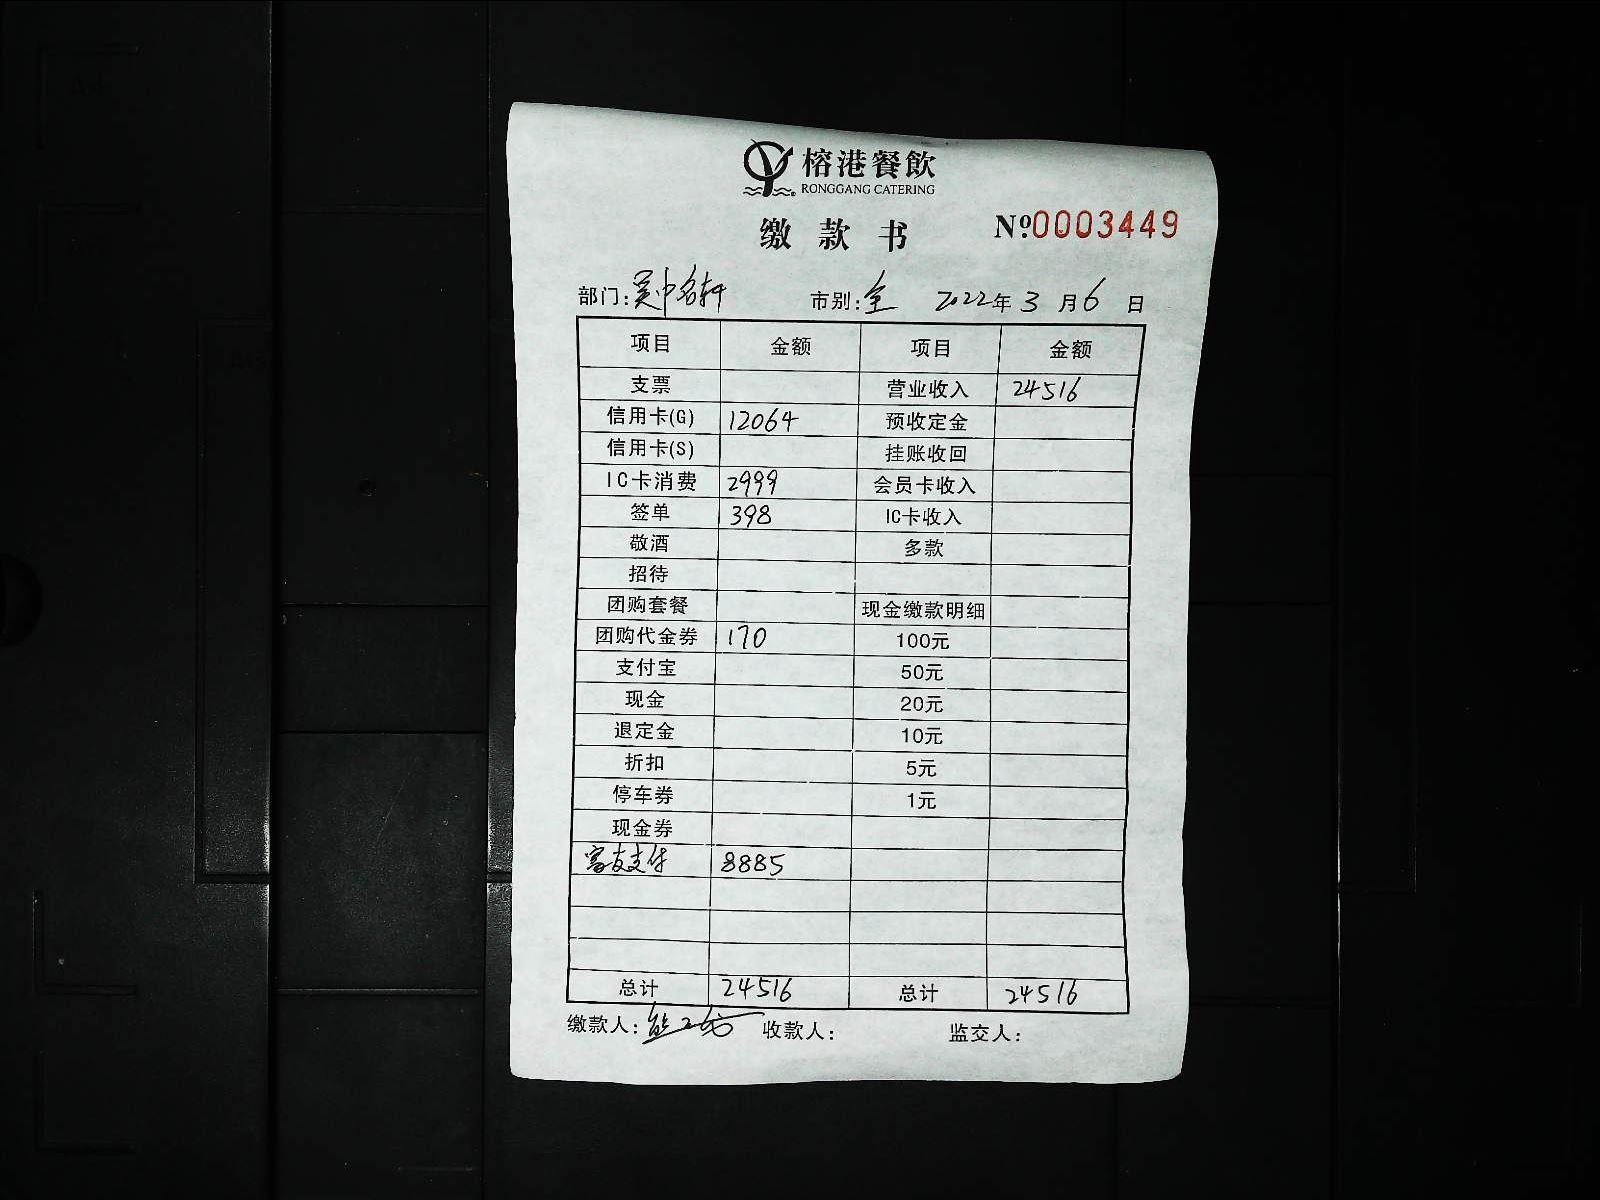 榕港餐飲
RONGGANG CATERING
缴款书 №:0003449
部门:吴中名轩 市别:全 2022年3月6日
项目 金额 项目 金额
支票 营业收入 24516
信用卡(G) 12064 预收定金
信用卡(S) 挂账收回
IC卡消费 2999 会员卡收入
签单 398 IC卡收入
敬酒 多款
招待
团购套餐 现金缴款明细
团购代金券 170 100元
支付宝 50元
现金 20元
退定金 10元
折扣 5元
停车券 1元
现金券
富友支付 8885
总计 24516 总计 24516
缴款人: 收款人: 监交人: